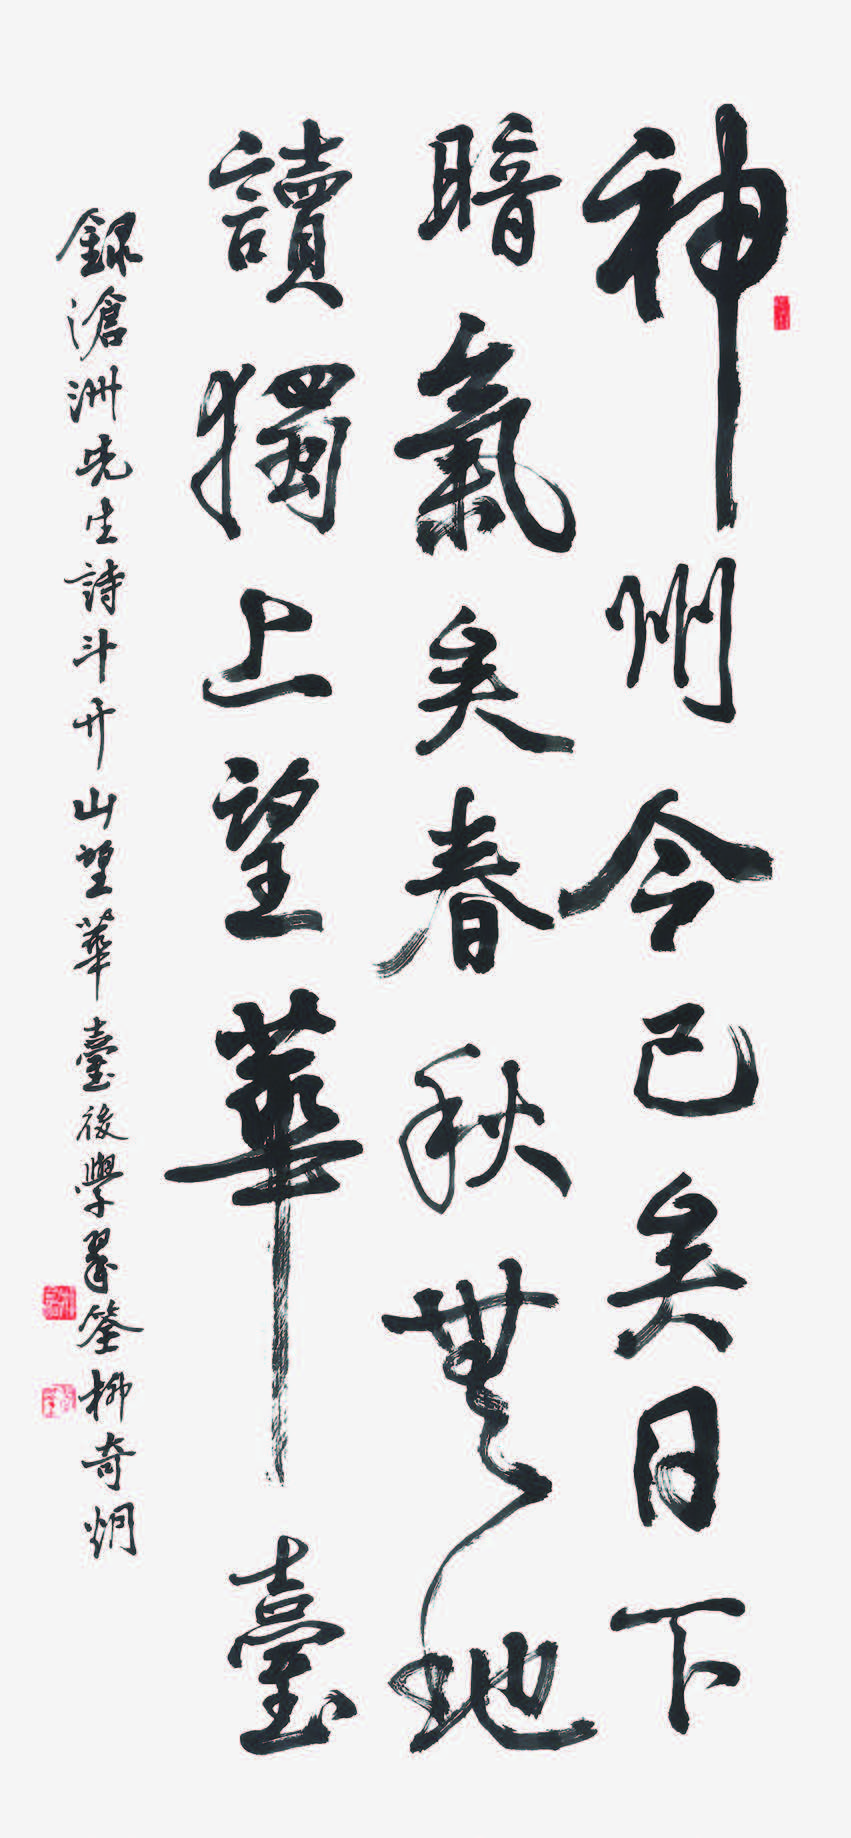 神州今已矣日下
暗氣矣春秋無地
讀獨上望華臺
錄滄洲先生詩斗开山望華臺後學翠筌柳奇炯